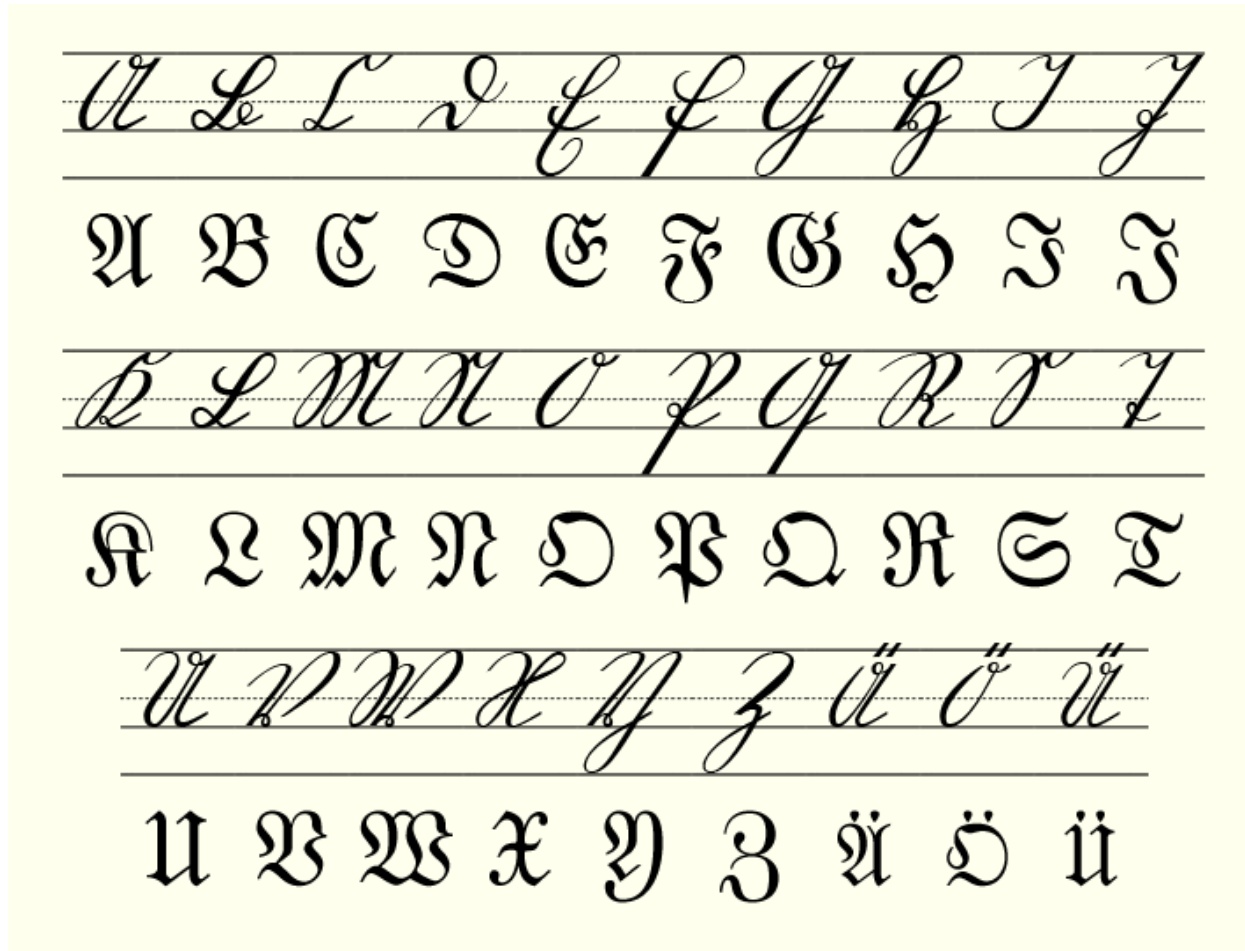 A B C D E F G H I J
A B C D E F G H I J
K L M N O P Q R S T
K L M N O P Q R S T
U V W X Y Z Ä Ö Ü
U V W X Y Z Ä Ö Ü